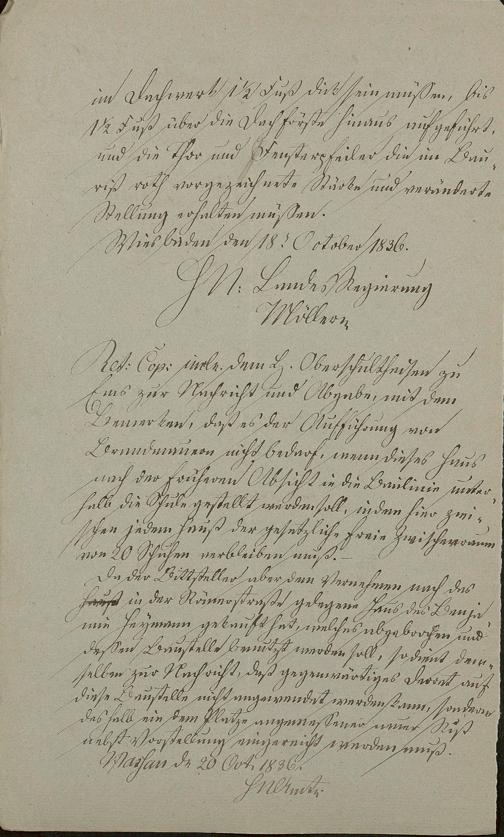 im Dachwerk 1 1/2 Fuß dick sein müssen, bis
1 1/2 Fuß über die Dachförste hinaus aufgeführt,
und die Thor und Fensterpfeiler die im Bau-
riß roth vorgezeichnete Stärke und veränderte
Stellung erhalten müssen.
Wiesbaden den 18t October 1836.
H N: Landes Regierung
Möller
Ret: Cop: dem H. Oberschultheisen zu
Ems zur Nachricht und Abgabe, mit dem
Bemerken, daß es der Aufführung von
Brandmauern nicht bedarf, wenn dieses Haus
nach der früheren Absicht in die Baulinie unter-
halb die Schule gestellt werden soll, indem hier zwi-
schen jedem Hauß der gesetzliche freie Zwischenraum
von 20 Schuhen verbleiben muß.
Da der Bittsteller aber dem Vernehmen nach das
in der Römerstraße gelegene Haus des Benja-
min Heymann gekauft hat, welches abgebrochen und
dessen Baustelle benutzt werden soll, so dient dem-
selben zur Nachricht, daß gegenwärtiges Decret auf
diese Baustelle nicht angewendet werden kann, sondern
deshalb ein dem Platze angemessener neuer Riß
nebst Vorstellung eingereicht werden muß.
Nassau de 20 Oct. 1836.
H N Amt